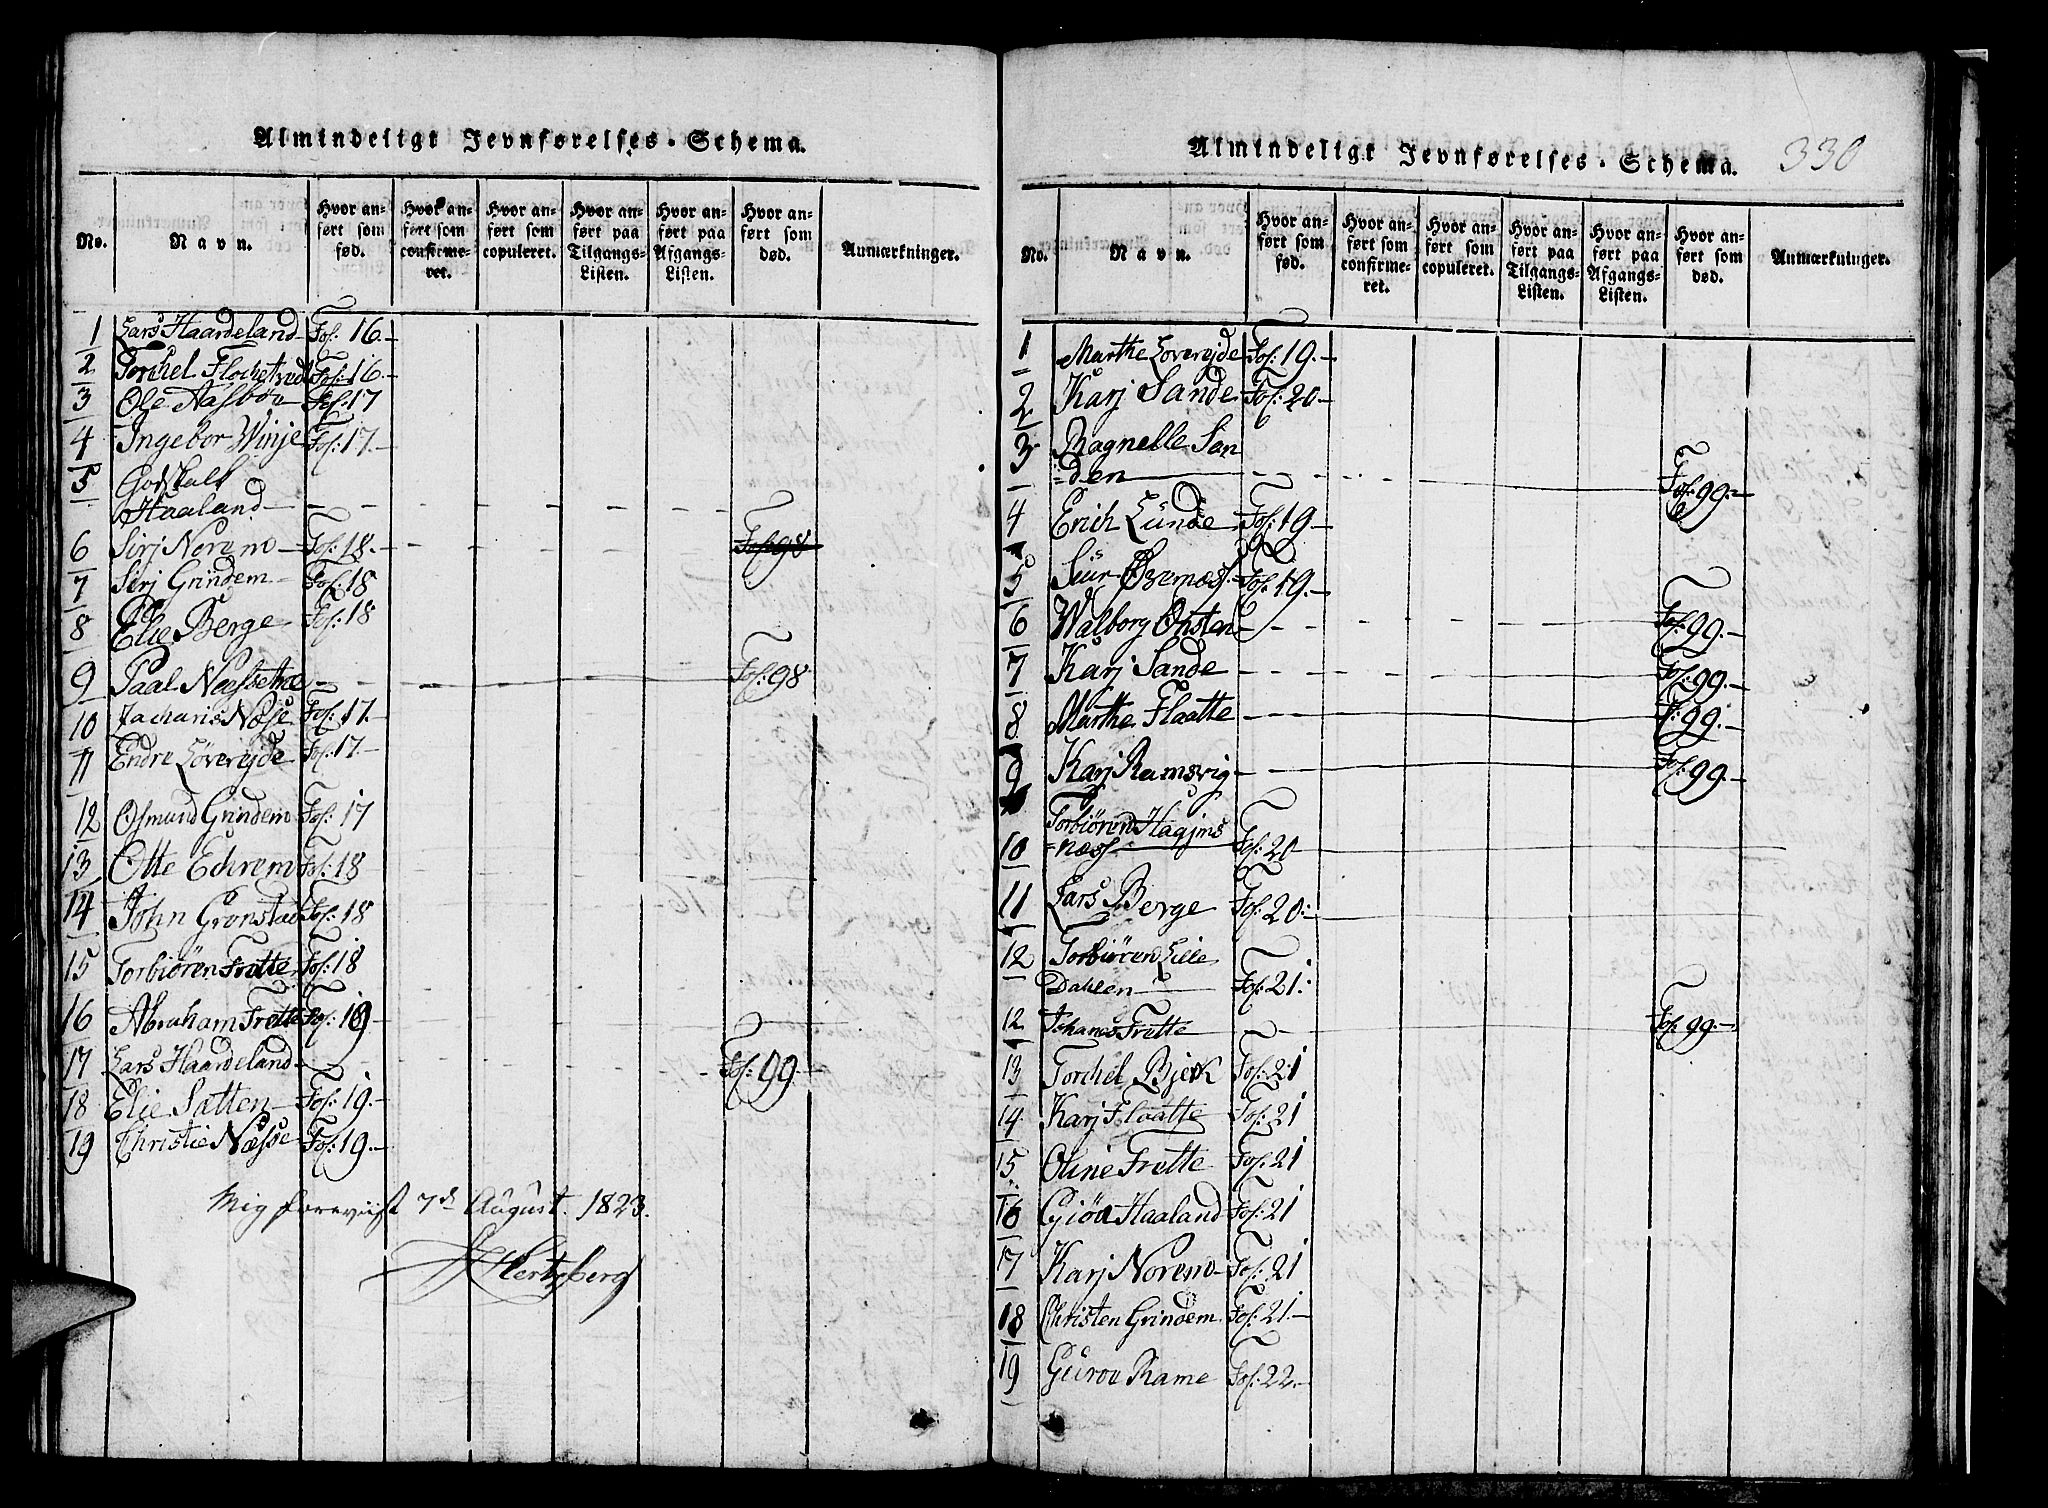 Almindeligt Jevnførelses-Schema.
No.
Navn.
Hvor anført som fød.
Hvor anført som confirmeret.
Hvor anført som copuleret.
Hvor anført paa Tilgangs-Listen.
Hvor anført paa Afgangs-Listen.
Hvor anført som død.
Anmærkninger.
1 Lars Haardeland Fol. 16.
2 Torchel Flochetvedt Fol. 16.
3 Ole Aasbøe Fol. 17
4 Ingebor Winje Fol. 17.
5 Godskalk
Haaland
6 Sirj Noremo Fol. 18. Fol. 98
7 Sirj Grindem Fol. 18
8 Elie Berge Fol. 18
9 Paal Noessetræ Fol. 98
10 Zacharis Næse Fol. 17.
11 Endre Løverejde Fol. 17.
12 Osmund Grindem Fol. 17
13 Otte Echrem Fol. 18
14 John Gronstad Fol. 18
15 Torbiören Frette Fol. 18
16 Abraham Frette Fol. 19
17 Lars Haardeland Fol. 99.
18 Elie Sætten Fol. 19.
19 Christie Næsse Fol. 19.
Mig foreviist 7d August. 1823.
Hertzberg
Almindeligt Jevnførelses-Schema.
330
No.
Navn.
Hvor anført som fød.
Hvor anført som confirmeret.
Hvor anført som copuleret.
Hvor anført paa Tilgangs-Listen.
Hvor anført paa Afgangs-Listen.
Hvor anført som død.
Anmærkninger.
1 Marthe Løverejde Fol. 19.
2 Karj Sande Fol. 20.
3 Ragnelle San
=den Fol. 99.
4 Erich Lunde Fol. 19.
5 Siur Øvernæs Fol. 19.
6 Walborg Østen Fol. 99.
7 Karj Sande Fol. 99.
8 Marthe Flaatte F. 99.
9 Karj Ramsvig Fol. 99.
10 Torbiören Hagjms
=næs Fol. 20
11 Lars Berge Fol. 20.
12 Torbiören Lille
Dahlen Fol. 21.
12 Johanes Frette Fol. 99.
13 Torchel Bjerk Fol. 21
14 Karj Flaatte Fol. 21
15 Oline Frette Fol. 21
16 Giöa Haaland Fol. 21
17 Karj Noremo Fol. 21
18 Christen Grindem Fol. 21.
19 Gurou Rame Fol. 22.